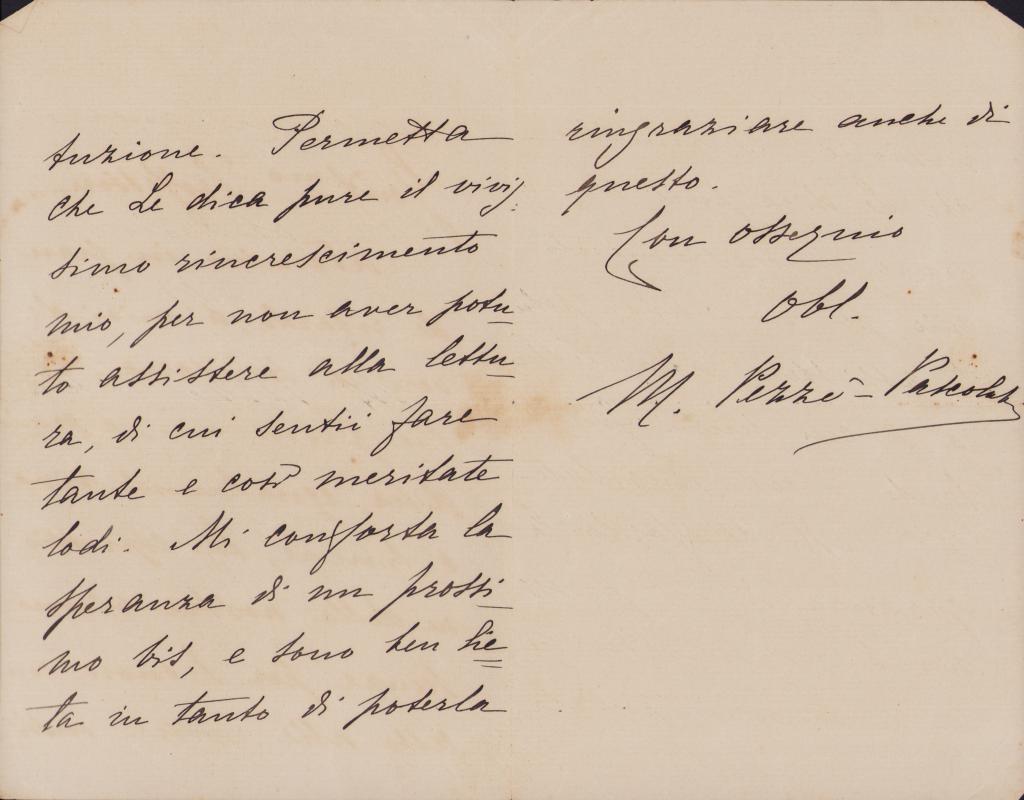 tuzione. Permetta
che Le dica pure il vivis
simo rincrescimento
mio, per non aver potu
to assistere alla lettu
ra, di cui sentii fare
tante e così meritate
lodi. Mi conforta la
speranza di un prossi
mo bis, e sono ben lie
ta in tanto di poterla
ringraziare anche di
questo.
Con ossequio
Obl.
M. Pezzè-Pascolato